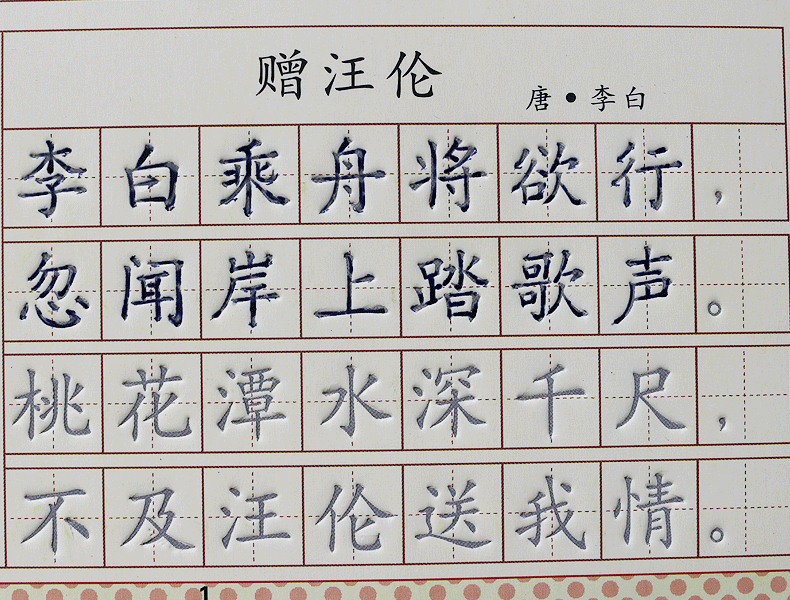 赠汪伦
唐·李白
李白乘舟将欲行，
忽闻岸上踏歌声。
桃花潭水深千尺，
不及汪伦送我情。
1